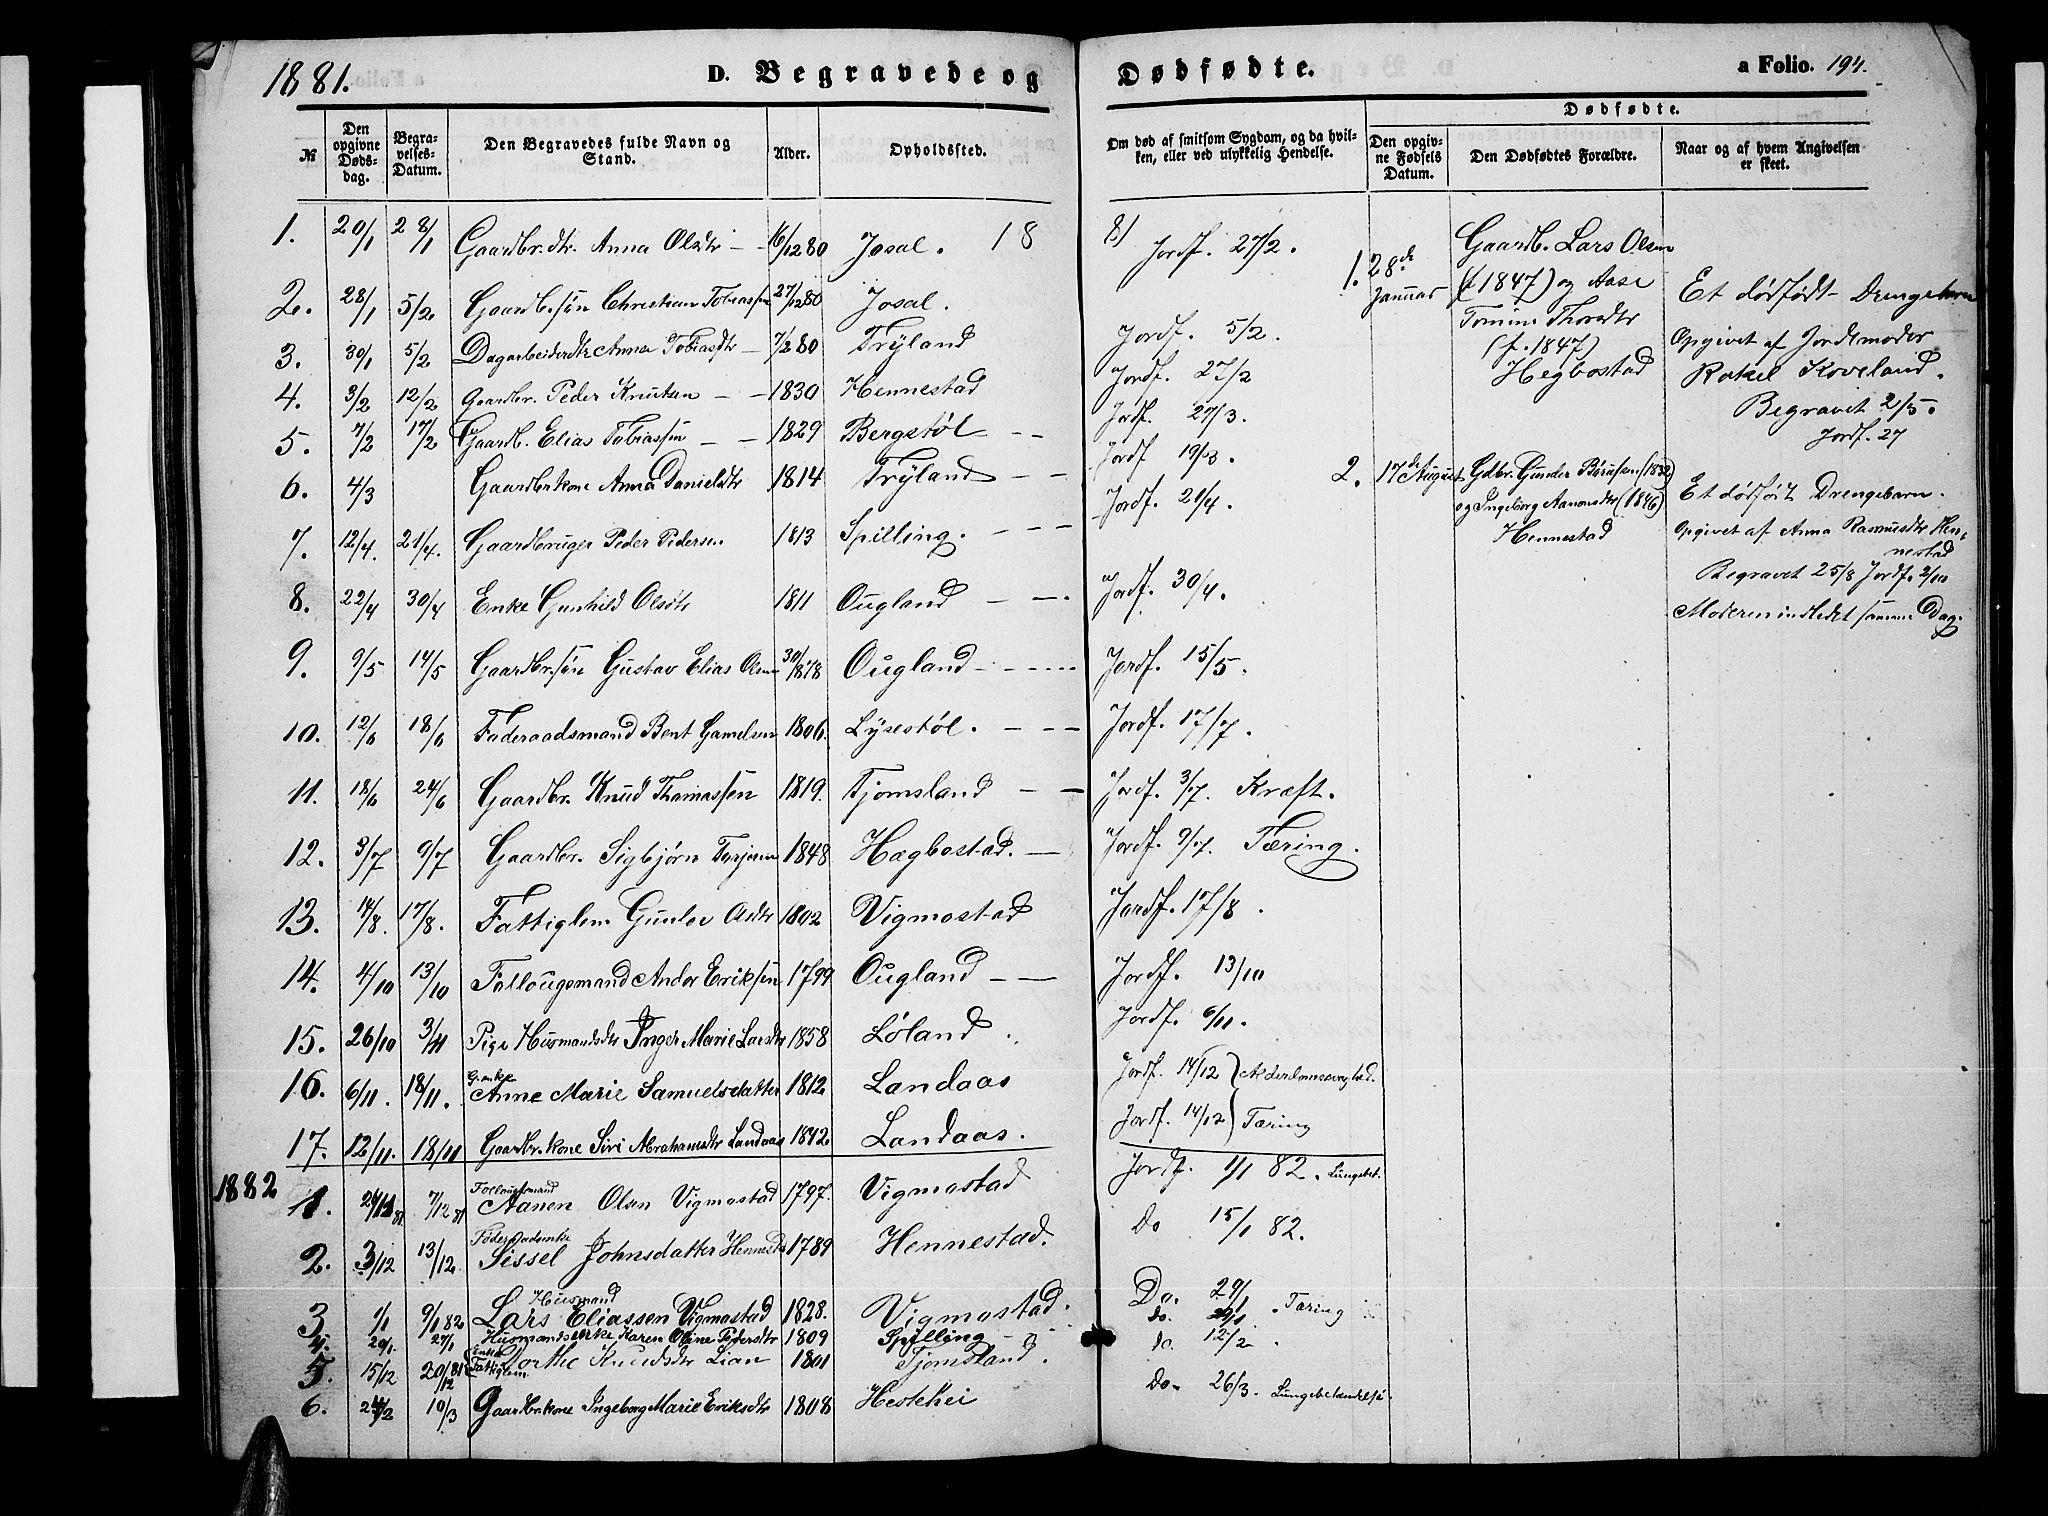 1881.
D. Begravede og Dødfødte.
a Folio. 194.
№
Den opgivne Døds-dag.
Begra-velses-Datum.
Den Begravedes fulde Navn og Stand.
Alder.
Opholdssted.
Om død af smitsom Sygdom, og da hvil-ken, eller ved ulykkelig Hendelse.
Dødfødte.
Den opgiv-ne Fødsels Datum.
Den Dødfødtes Forældre.
Naar og af hvem Angivelsen er skeet.
1. 20/1 28/1 Gaardbr. dtr. Anna Olsdtr - 16/12 80 Josal. 18 81 Jordf. 27/2.
2. 28/1 5/2 Gaardb. søn Christian Tobiassen 27/12 80 Josal. Jordf. 5/2.
3. 30/1 5/2 Dagarbeiderdtr Anna Tobiasdtr - 7/2 80 Tryland Jordf. 27/2
4. 3/2 12/2 Gaardbr. Peder Knutsen - - 1830 Hennestad Jordf. 27/3.
5. 7/2 17/2 Gaardb. Elias Tobiassen - - 1829 Bergstøl - - Jordf 19/3.
6. 4/3 Gaardbrkone Anna Danieldtr 1814 Tryland - - Jordf. 21/4.
7. 12/4. 21/4. Gaardbruger Peder Pedersen 1813 Spilling. - - -
8. 22/4 30/4 Enke Gunhild Olsdtr 1811 Ougland - - . Jordf. 30/4.
9. 9/5 14/5 Gaardbr. søn Gustav Elias Olsen 30/1 1878 Ougland - - - - - Jordf. 15/5.
10. 12/6 18/6 Føderaadsmand Bent Gamelsen 1806. Lysestøl. - - - Jordf. 17/7.
11. 18/6 24/6 Gaardbr. Knud Thomassen 1819. Tjomsland - - Jordf. 3/7. Kræft.
12. 3/7 9/7 Gaardbr. Sigbjørn Terjesen 1848 Hægbostad. - Jordf. 9/7. Tæring.
13. 14/8. 17/8. Fattiglem Gunlev Olsdtr 1802 Vigmostad Jordf. 17/8.
14. 4/10 13/10 Follougsmand Andor Eriksen 1799 Ougland - - Jordf. 13/10
15. 26/10 3/11 Pige Husmandsdtr Inger Marie Larsdtr 1858 Løland . Jordf. 6/11.
16. 6/11. 18/11. G. enke
Anne Marie Samuelsdatter 1812 Landaas Jordf. 14/12 }
17. 12/11. 18/11 Gaardbr. kone Siri Abrahamsdtr Landaas 1842. Landaas. Jordf. 14/12 } Tæring
1882
1. 24/11 81 7/12 81 Follougsmand
Aanen Olsen Vigmostad 1797. Vigmostad Jordf. 1/1 82. Lungebet.
2. 3/12 13/12. Føderaadsenke
Sissel Johnsdatter Hennestad 1789 Hennestad. Do 15/1 82.
3 1/1 9/1 82 Husmand
Lars Eliassen Vigmostad 1828. Vigmostad. Do. 29/1 . Tæring
4. 20/1. 27/1 Husmandsenke Karen Oline Pedersdtr 1809 Spilling - - do. 29/1
5. 15/12 20/12 81 Enke Fattiglem. Dorthe Knudsdtr Lian 1801 Tjomsland. do. 12/2
6. 24/2 10/3 Gaardbrkone Ingeborg Marie Eriksdtr 1808 Hestehei Do. 26/3. Lungebetændelse
1. 28de Januar
Gaardb. Lars Olsen
(f 1847) og Aase
Tomine Thorsdtr
(f. 1847)
Hegbostad
Et dødfødt Drengebarn
Opgivet af Jordemoder
Rakel Koveland.
Begravet 2/5.
Jordf. 27
2. 17de August
Gdbr. Gunder Børusen (1832)
og Ingeborg Aanensdtr (1846)
Hennestad
Et dødfødt Drengebarn.
Opgivet af Anna Rasmusdtr Hen-
nestad
Begravet 25/8 Jordf. 2/10
Moderen indledet samme Dag.